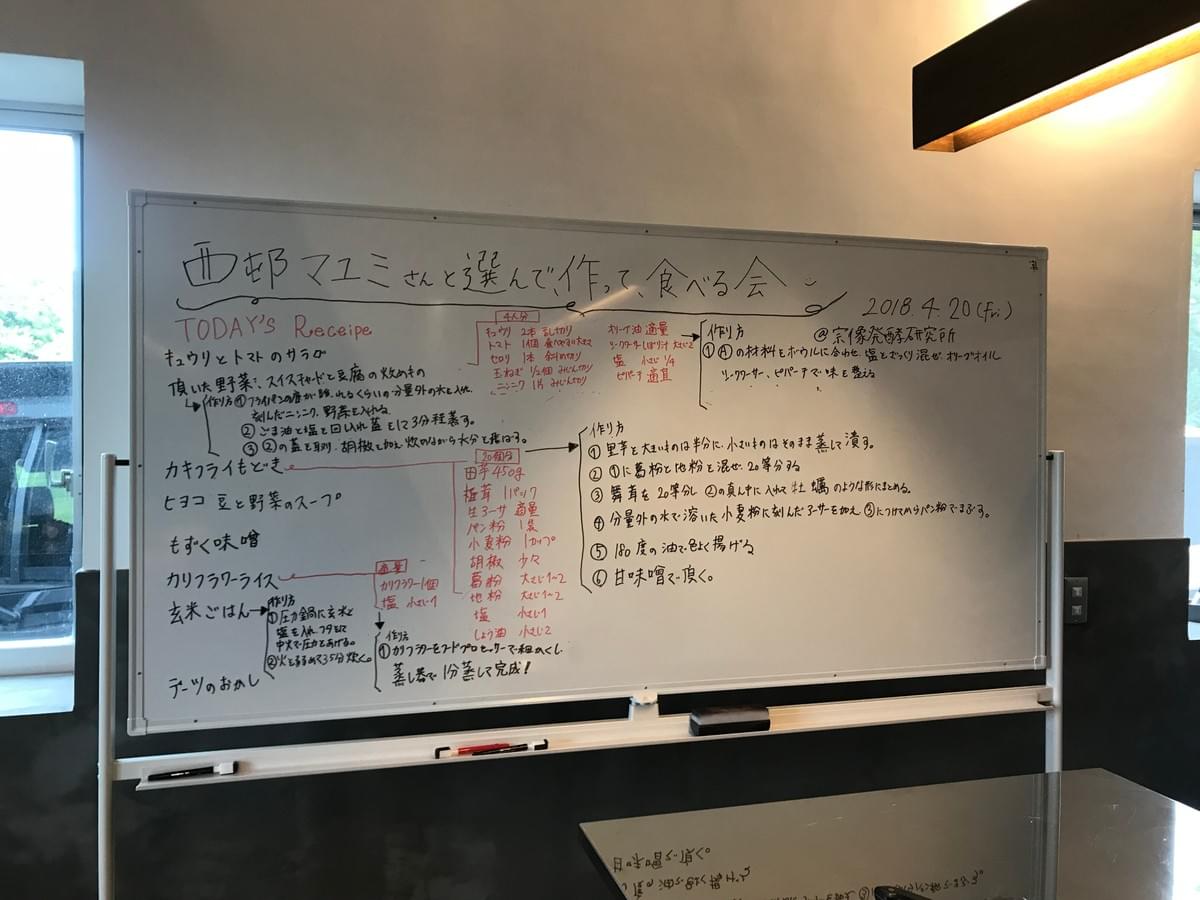 西邨マユミさんと選んで、作って、食べる会
2018.4.20(Fri)
@宗像発酵研究所
TODAY'S Receipe
キュウリとトマトのサラダ
4人分
キュウリ 2本 乱切り
トマト 1個 食べやすい大きさ
セロリ 1本 斜め切り
玉ねぎ 1/2個 みじん切り
ニンニク 1片 みじん切り
オリーブ油 適量
シークワーサーしぼり汁 大さじ2
塩 小さじ 1/4
ピパーチ 適宜
作り方
① Ⓐの材料をボウルに合わせ、塩とざっくり混ぜ、オリーブオイル
シークワーサー、ピパーチで味を整える
頂いた野菜、スイスチャードと豆腐の炒めもの
作り方 ① フライパンの底が隠れるくらいの分量外の水と入れ
刻んだニンニク、野菜を入れる
② ごま油と塩を回し入れ蓋をして3分程蒸す。
③ ②の蓋を取り、胡椒を加え炒めながら水分を飛ばす。
カキフライもどき
20個分
田芋 450g
椎茸 1パック
生アーサ 適量
パン粉 1袋
小麦粉 1カップ
胡椒 少々
葛粉 大さじ1~2
地粉 大さじ1~2
塩 小さじ1
しょう油 小さじ2
作り方
① 里芋と大きいものは半分に、小さいものはそのまま蒸して潰す。
② ①に葛粉と地粉と混ぜ、20等分する
③ 舞茸を20等分し ②の真ん中に入れて牡蠣のような形にまとめる。
④ 分量外の水で溶いた小麦粉に刻んだアーサーを加え、③につけてからパン粉でまぶす。
⑤ 180度の油で色よく揚げる
⑥ 甘味噌で頂く。
ヒヨコ豆と野菜のスープ
もずく味噌
カリフラワーライス
カリフラワー1個
塩 小さじ1
作り方
① カリフラワーをフードプロセッサーで粗めくし
蒸し器で1分蒸して完成!
玄米ごはん
作り方
① 圧力鍋に玄米と
塩を入れ、フタをして
中火で圧力をあげる。
② 火を弱めて35分炊く。
デーツのおかし